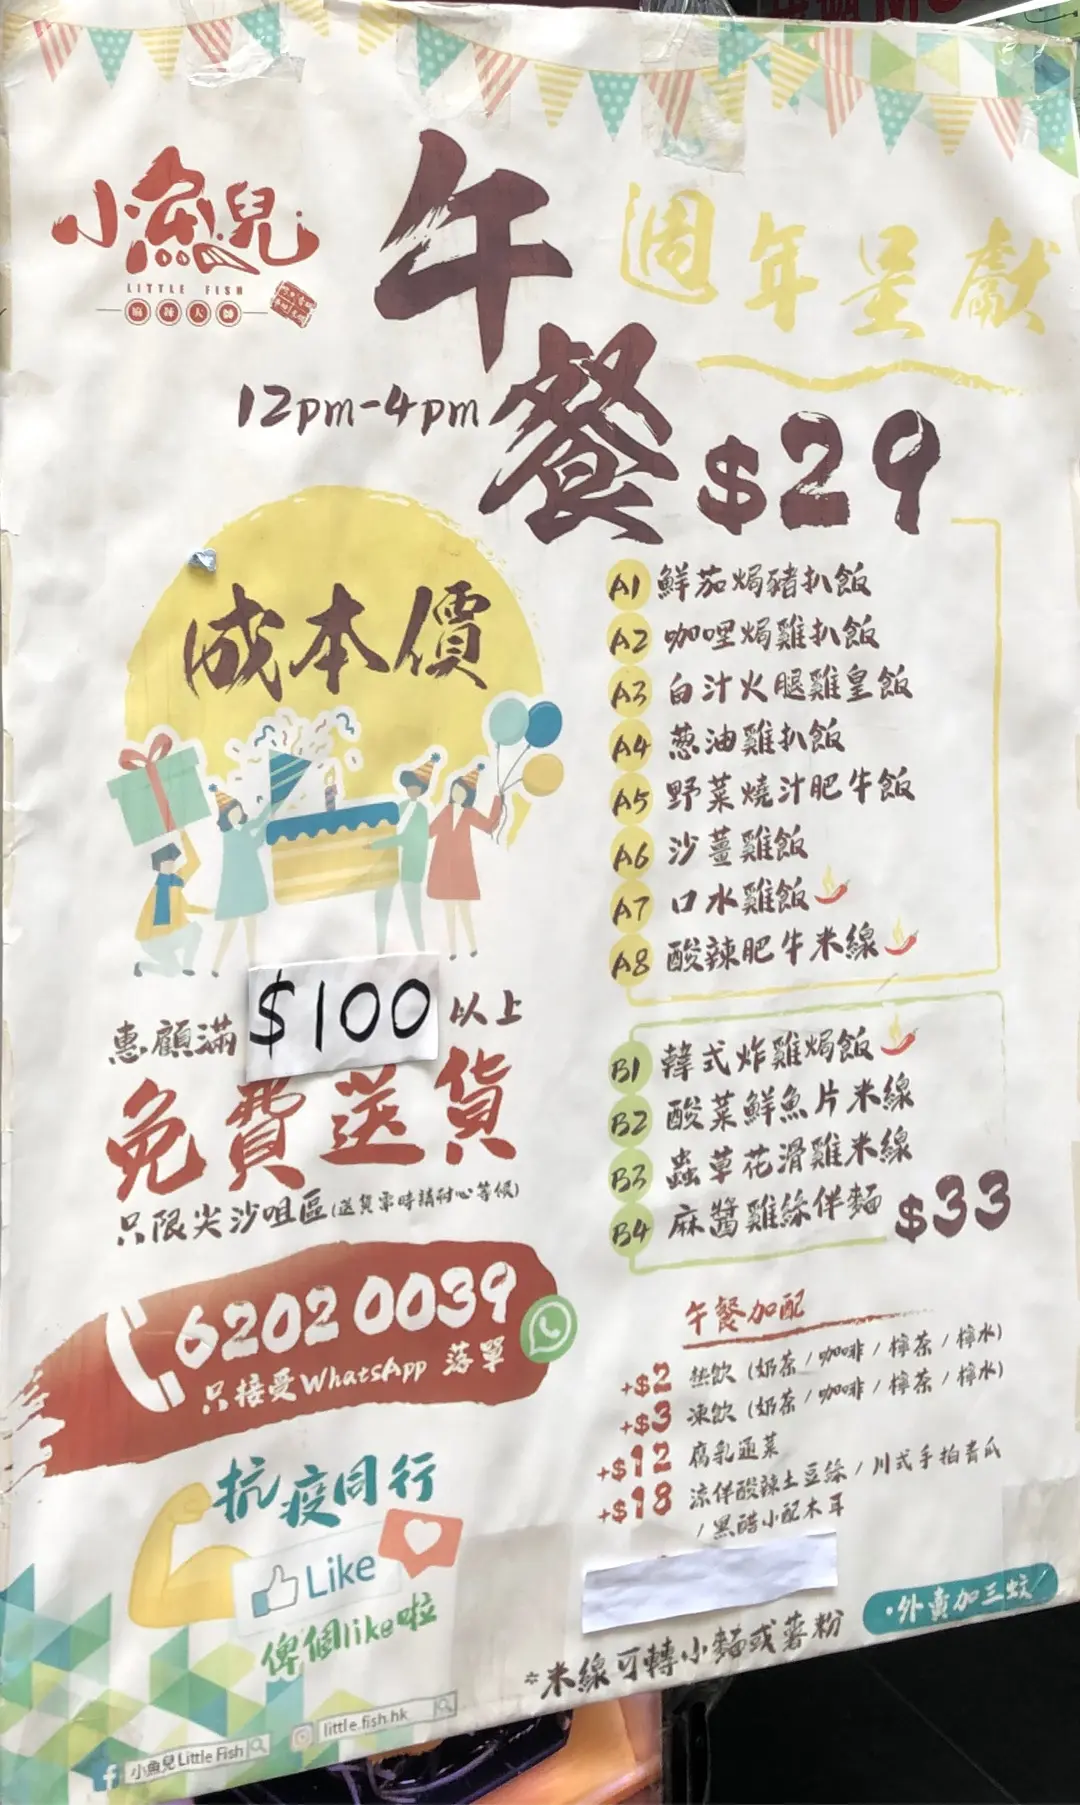 小魚兒
LITTLE FISH
麻辣大師
午餐
週年呈獻
12pm-4pm
$29
成本價
A1 鮮茄焗豬扒飯
A2 咖哩焗雞扒飯
A3 白汁火腿雞皇飯
A4 葱油雞扒飯
A5 野菜燒汁肥牛飯
A6 沙薑雞飯
A7 口水雞飯
A8 酸辣肥牛米線
惠顧滿$100以上
免費送貨
只限尖沙咀區(送貨需時請耐心等候)
B1 韓式炸雞焗飯
B2 酸菜鮮魚片米線
B3 蟲草花滑雞米線
B4 麻醬雞絲伴麵
$33
6202 0039
只接受WhatsApp 落單
午餐加配
+$2 热飲 (奶茶/咖啡/檸茶/檸水)
+$3 凍飲 (奶茶/咖啡/檸茶/檸水)
+$12 腐乳通菜
+$18 涼伴酸辣土豆絲/川式手拍青瓜
/黑醋小配木耳
抗疫同行
Like
俾個like啦
·外賣加三蚊
*米線可轉小麵或薯粉
小魚兒 Little Fish
little.fish.hk